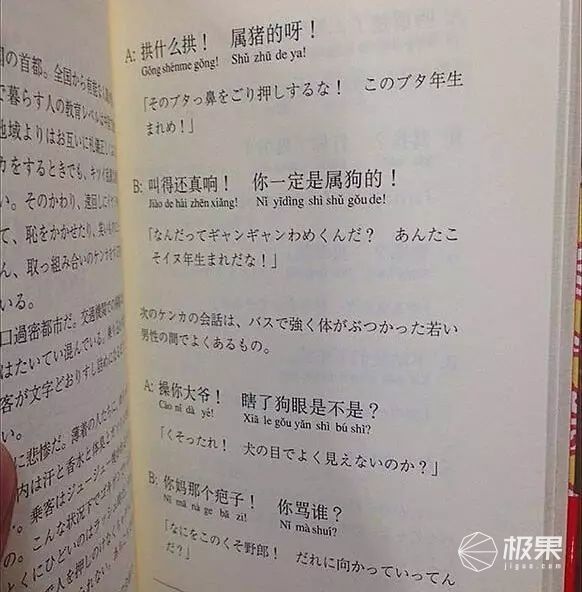 国の首都。全国から
で暮らす人の教育レベルは
地域よりはお互いに礼儀正し
カをするときでも、キツイ
い。そのかわり、遠回しに
て、恥をかかせたり、笑い
ん、取っ組み合いのケンカ
いる。
口過密都市だ。交通機関
はたいてい混んでいる。
客が文字どおりすし詰めになる
い。
に悲惨だ。薄着の人たちに
内は汗と香水と体臭と
す。乗客はジュージュー
。こんな状況下で
とくにひどいのはラッシュ
で人を押しのけ
A: 拱什么拱！ 属猪的呀！
Gǒng shénme gǒng! Shǔ zhū de ya!
「そのブタっ鼻をごり押しするな！ このブタ年生
まれめ！」
B: 叫得还真响！ 你一定是属狗的！
Jiào de hái zhēn xiǎng! Nǐ yīdìng shì shǔ gǒu de!
「なんだってギャンギャンわめくんだ？ あんたこ
そイヌ年生まれだな！」
次のケンカの会話は、バスで強く体がぶつかった若い
男性の間でよくあるもの。
A: 操你大爷！ 瞎了狗眼是不是？
Cào nǐ dà yé! Xiā le gǒu yǎn shì bú shì?
「くそったれ！ 犬の目でよく見えないのか？」
B: 你妈那个疤子！ 你骂谁？
Nǐ mā nà ge bā zi! Nǐ mà shuí?
「なにをこのくそ野郎！ だれに向かっていってん
だ？」
极果
jiguo.com